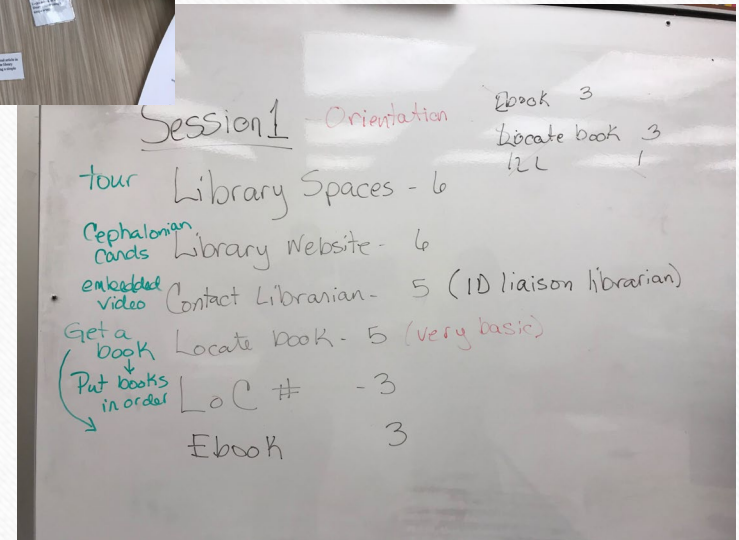 Session 1 Orientation
Ebook 3
Locate book 3
tour Library Spaces - 6
Cephalonian Cards Library Website - 6
embedded video Contact Librarian - 5 (ID liaison librarian)
Get a book Locate book - 5 (very basic)
Put books in order LoC # - 3
Ebook 3